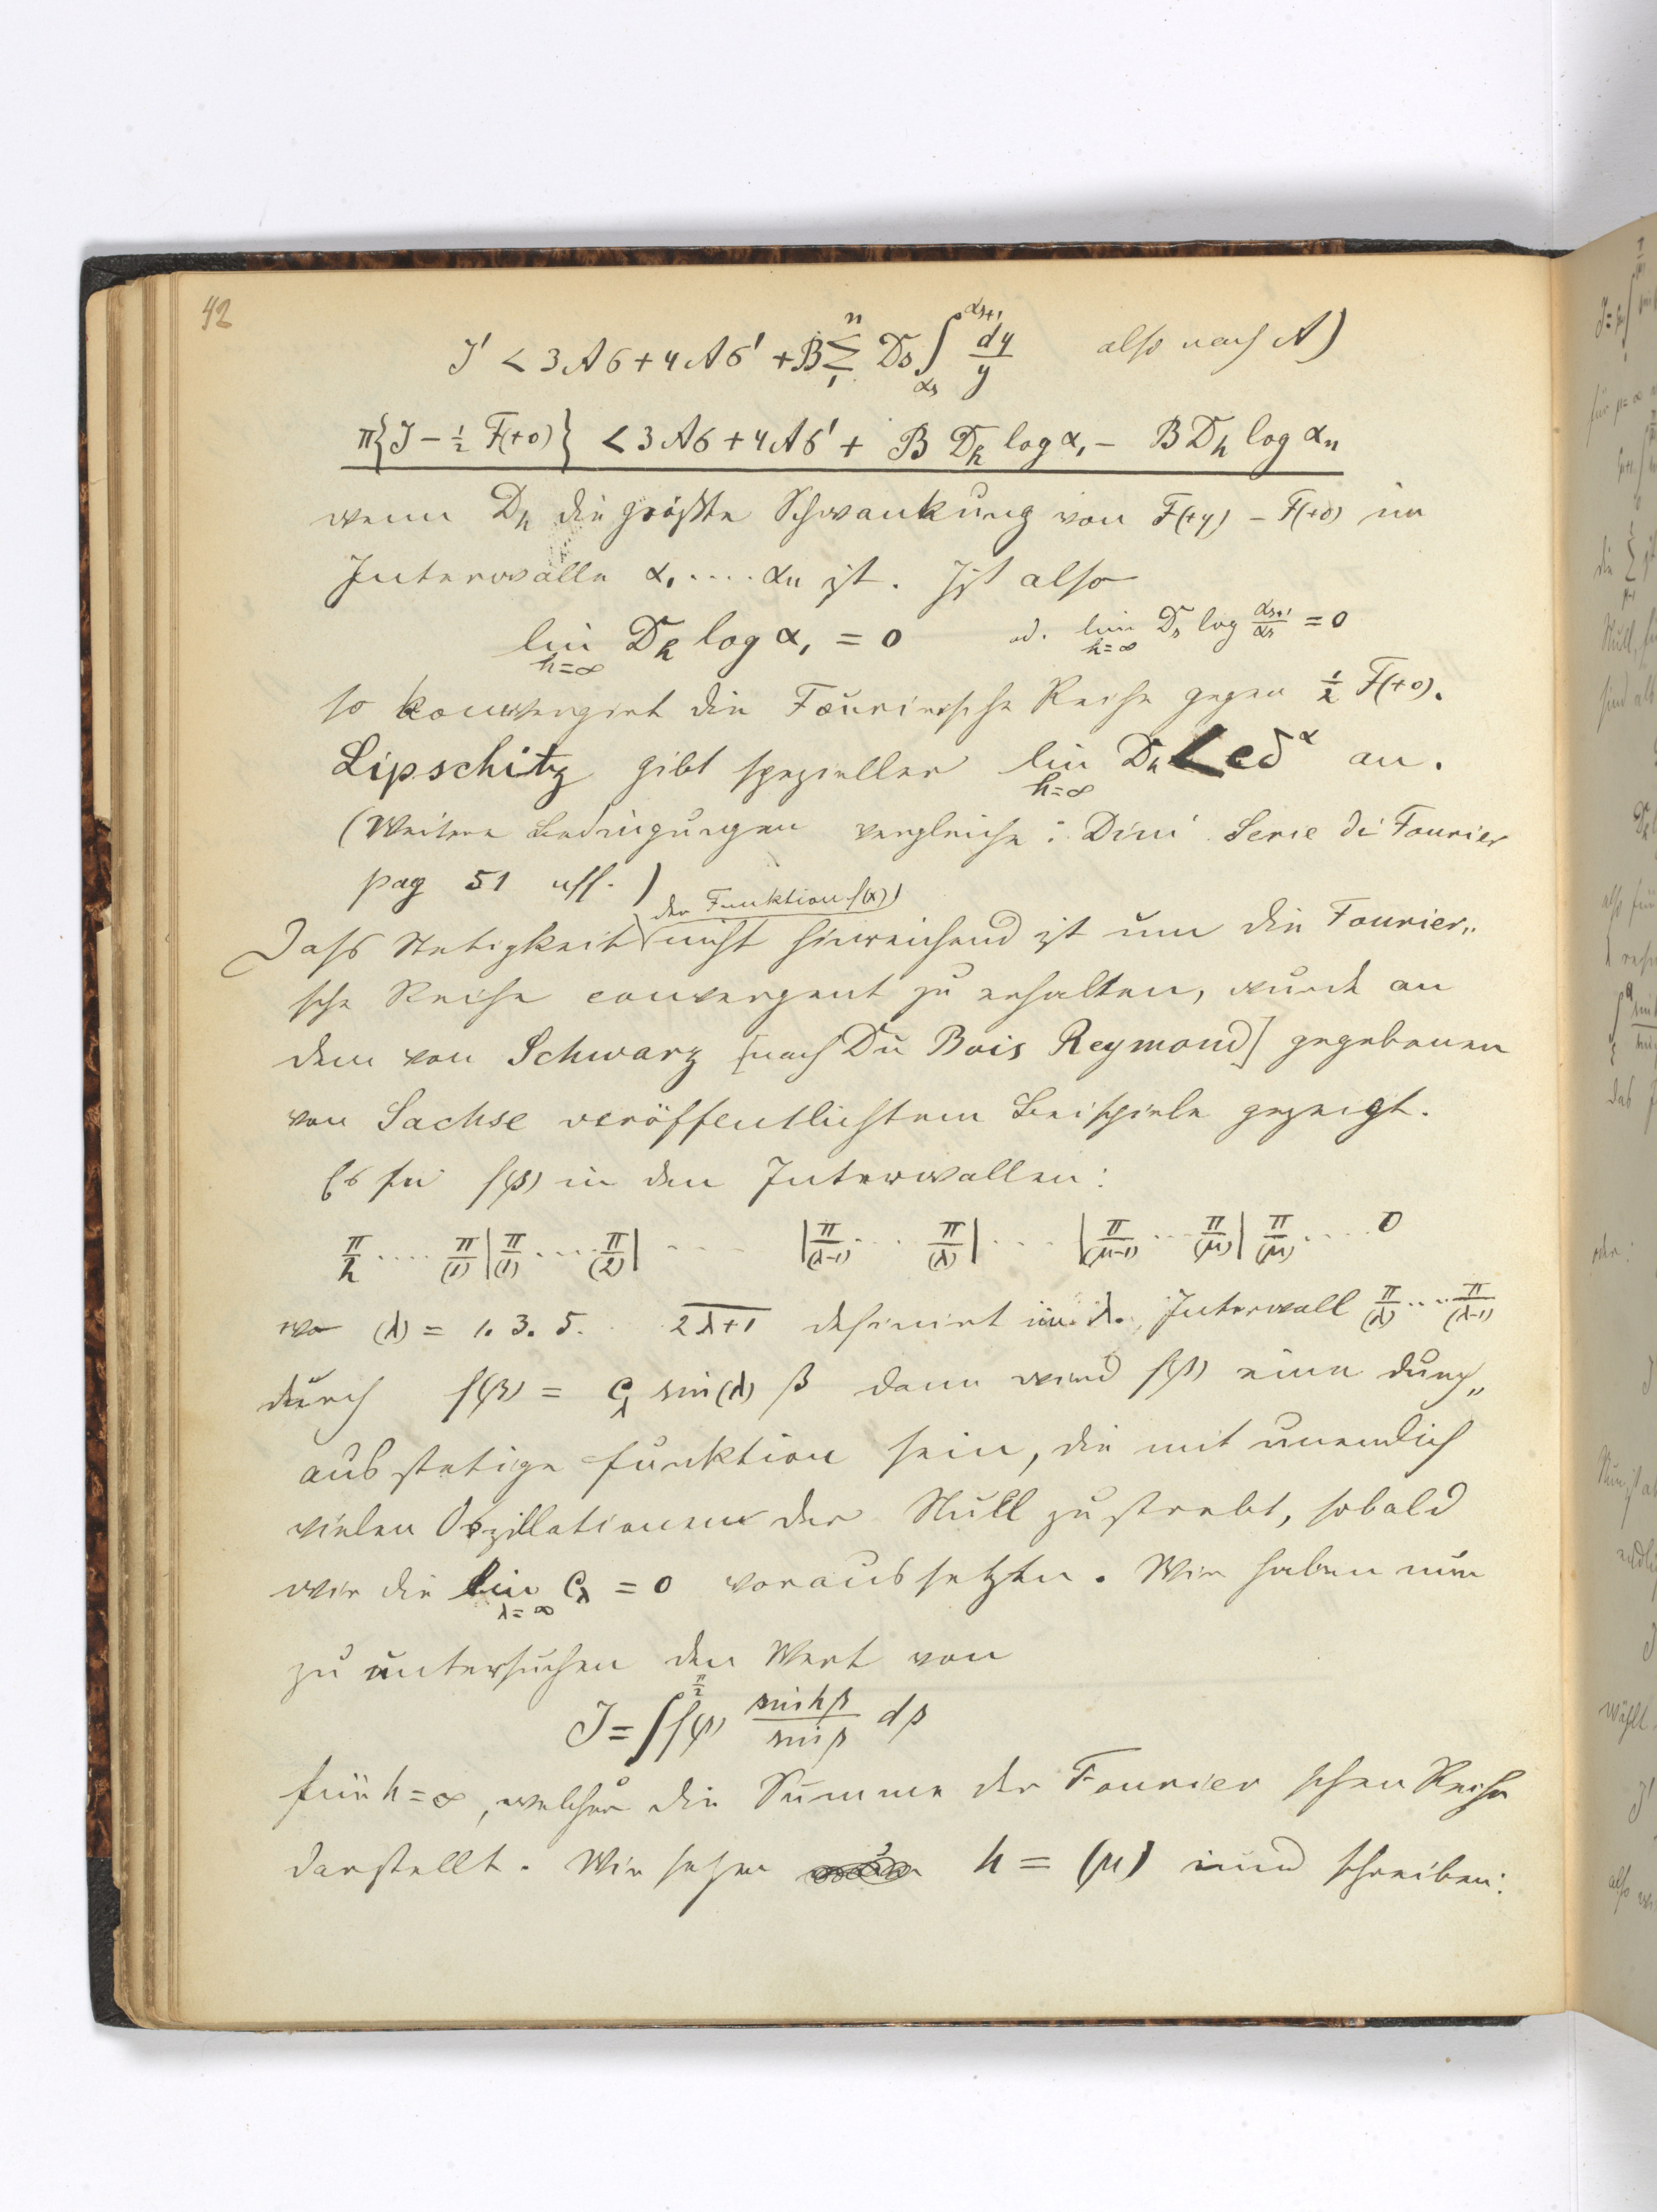 42
J' < 3Aσ + 4Aσ' + B Σ₁ⁿ Ds ∫_{αs}^{αs+1} dy/y also nach A)
π{J − ½ F(+0)} < 3Aσ + 4Aσ' + B D_h log α₁ − B D_h log αn
wenn D_h die größte Schwankung von F(+y) − F(+0) im
Intervalle α₁ .... αn ist. Ist also
lim_{h=∞} D_h log α₁ = 0 od. lim_{h=∞} Ds log αs+1/αs = 0
so konvergirt die Fourier'sche Reihe gegen ½ F(+0).
Lipschitz gibt spezieller lim_{h=∞} D_h < cδ^α an.
(Weitere Bedingungen vergleiche: Dini Serie di Fourier
pag 51 uff.)
der Funktion f(x)
Dass Stetigkeit nicht hinreichend ist um die Fourier„
sche Reihe convergent zu erhalten, wurde an
dem von Schwarz [nach Du Bois Reymond] gegebenen
von Sachse veröffentlichtem Beispiele gezeigt.
Es sei f(β) in den Intervallen:
π/2 .... π/(1) | π/(1) .... π/(2) | .... | π/(λ-1) .... π/(λ) | .... | π/(μ-1) .... π/(μ) | π/(μ) .... 0
wo (λ) = 1. 3. 5. . 2λ+1 definirt im λ. Intervall π/(λ) .... π/(λ-1)
durch f(β) = c_λ sin(λ)β dann wird f(β) eine durch„
aus stetige Funktion sein, die mit unendlich
vielen Oszillationen der Null zustrebt, sobald
wir die lim_{λ=∞} c_λ = 0 voraussetzten. Wir haben nun
zu untersuchen den Wert von
J = ∫^{π/2} f(β) sin hβ / sin β dβ
für h = ∞, welcher die Summe der Fourier schen Reihe
darstellt. Wir setzen h = (μ) und schreiben: